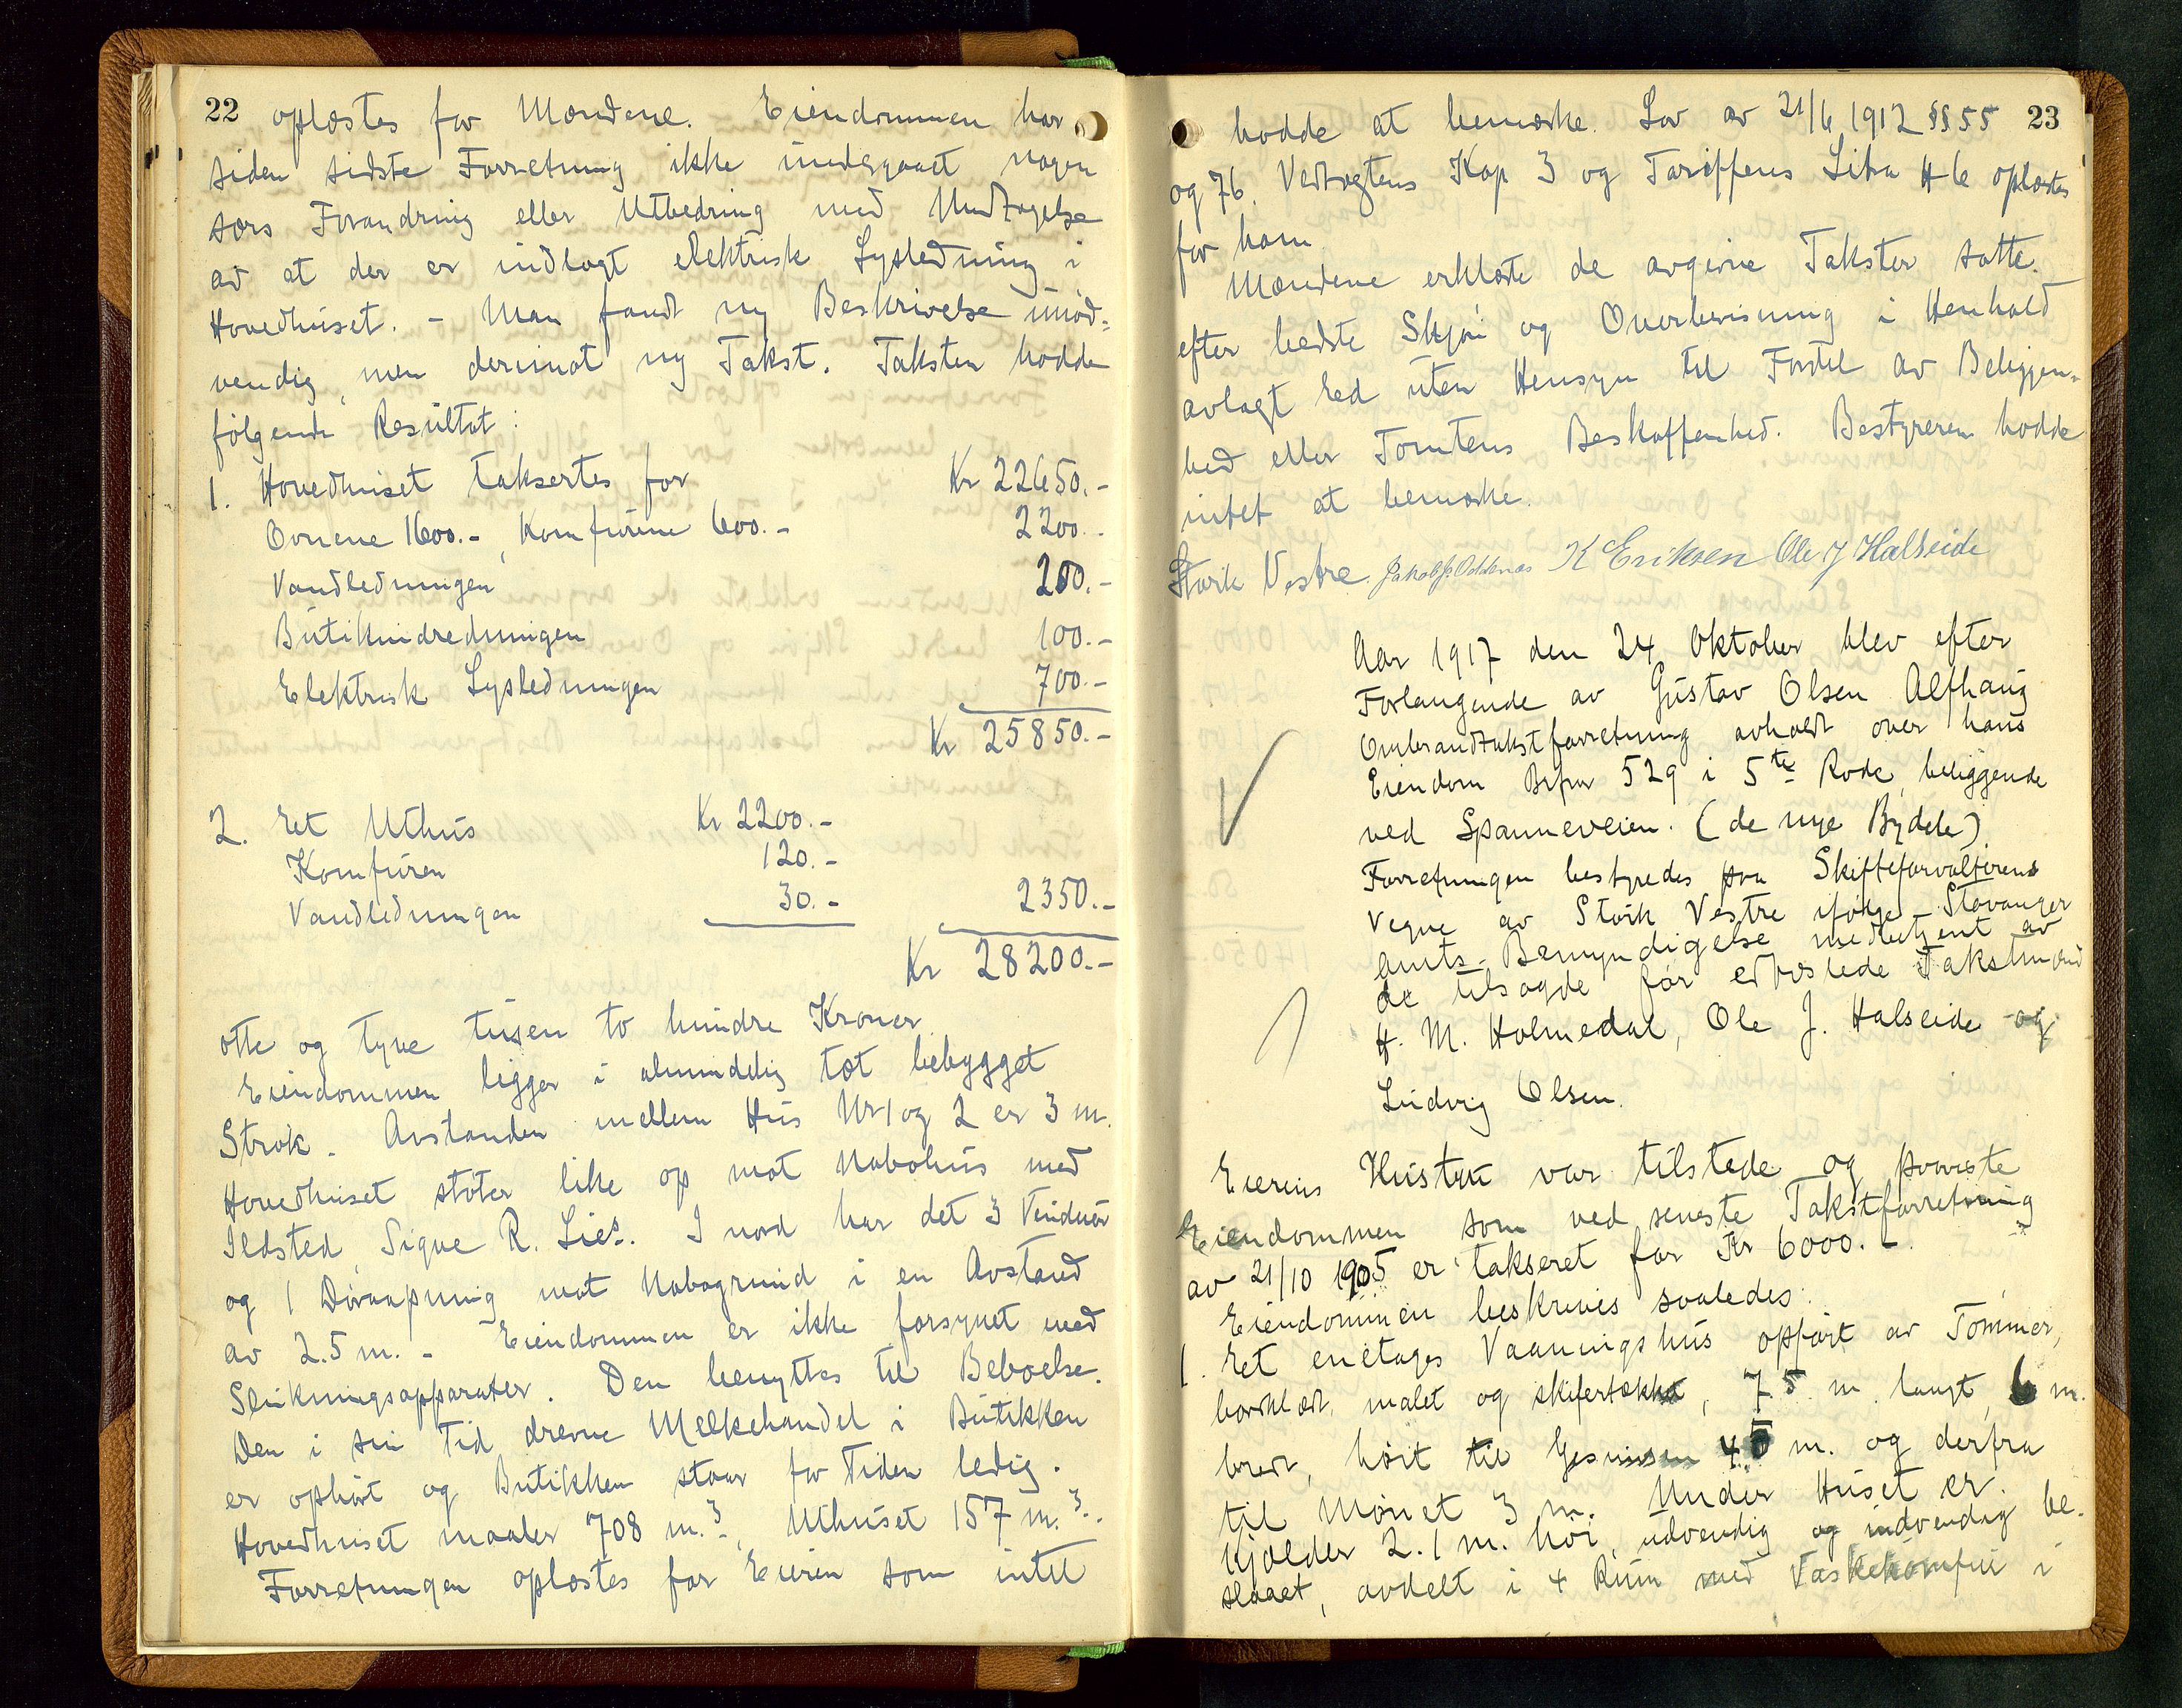 22
oplæstes for Mændene. Eiendommen har
siden sidste Forretning ikke undergaaet nogen
særs Forandring eller Utbedring med Undtagelse
av at der er indlagt elektrisk Lysledning i
Hovedhuset. - Man fandt ny Beskrivelse unød-
vendig, men derimot ny Takst. Taksten hadde
følgende Resultat:
1. Hovedhuset taksertes for Kr 22650.-
Ovnene 1600.-, Komfurene 600.- 2200.-
Vandledningen 200.-
Butikindredningen 100.-
Elektrisk Lysledningen 700.-
Kr 25850.-
2. Et Uthus Kr 2200.-
Komfuren 120.-
Vandledningen 30.- 2350.-
Kr 28200.-
otte og tyve tusen to hundre Kroner.
Eiendommen ligger i almindelig tæt bebygget
Strøk. Avstanden mellem Hus Nr 1 og 2 er 3 m.
Hovedhuset støter like op mot Nabohus med
Ildsted, Signe R. Lies. I nord har det 3 Vinduer
og 1 Døraapning mot Nabogrund i en Avstand
av 2.5 m. - Eiendommen er ikke forsynet med
Slukningsapparater. Den benyttes til Beboelse.
Den i sin Tid drevne Melkehandel i Butikken
er ophørt og Butikken staar for Tiden ledig.
Hovedhuset maaler 708 m.³, Uthuset 157 m.³.
Forretningen oplæstes for Eieren som intet
23
hadde at bemærke. Lov av 21/6 1912 §§ 55
og 76. Vedtægtens Kap 3 og Tariffens Litra H 6 oplæstes
for ham.
Mændene erklærte de avgivne Takster satte
efter bedste Skjøn og Overbevisning i Henhold
avlagt Ed uten Hensyn til Fordel av Beliggen-
hed eller Tomtens Beskaffenhed. Bestyreren hadde
intet at bemærke.
Størk Vestre Jakob J. Oddenæs K Eriksen Ole J Halseide
Aar 1917 den 24 Oktober blev efter
Forlangende av Gustav Olsen Alfhaug
Ombrandtakstforretning avholdt over hans
Eiendom Brfnr 529 i 5te Rode, beliggende
ved Spanneveien. (de nye Bydele)
Forretningen bestyredes paa Skifteforvalterens
Vegne av Størk Vestre ifølge Stavanger
amts Bemyndigelse medbetjent av
de tilsagde før edfæstede Takstmænd
H. M. Holmedal, Ole J. Halseide og
Ludvig Olsen.
Eierens Hustru var tilstede og paaviste
Eiendommen som ved seneste Takstforretning
av 21/10 1905 er takseret for Kr 6000.-.
Eiendommen beskrives saaledes:
1. Et enetages Vaaningshus opført av Tømmer,
bordklædt, malet og skifertækket, 7.5 m. langt, 6 m.
bredt, høit til Gesimsen 4.5 m. og derfra
til Mønet 3 m. Under Huset er
Kjælder 2.1 m. høi, udvendig og indvendig be-
slaaet, avdelt i 4 Rum med Vaskekomfur i